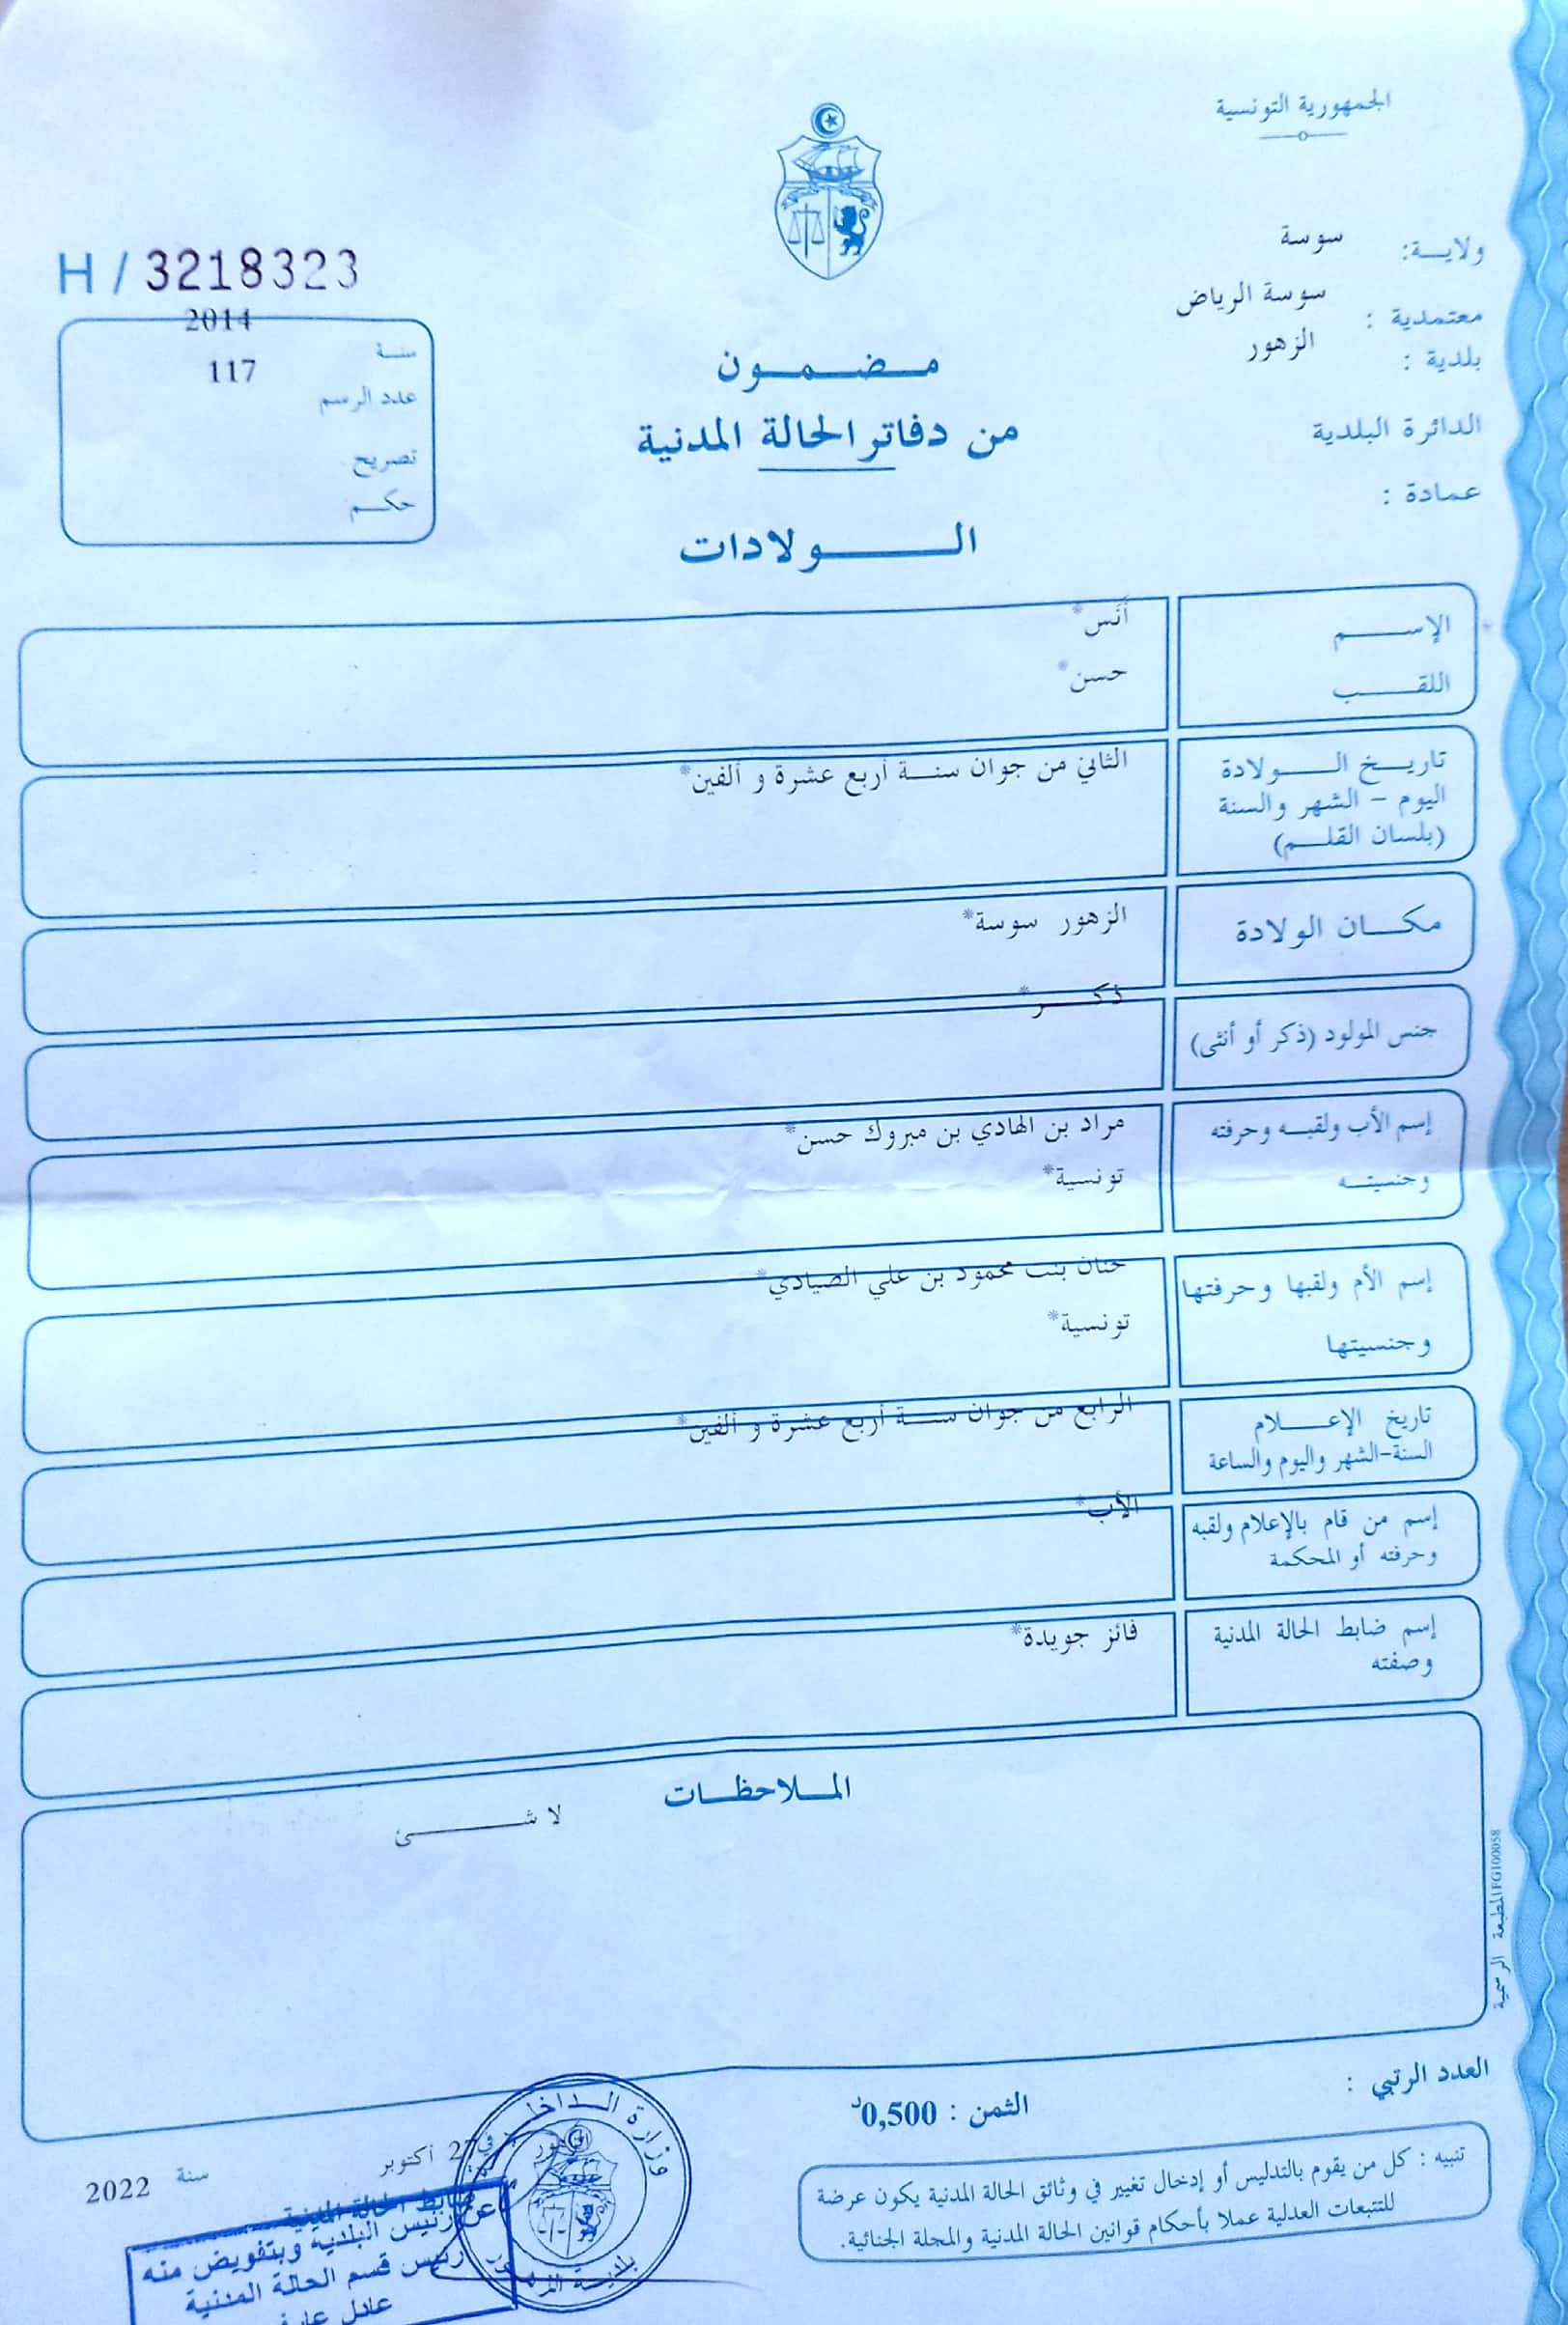 الجمهورية التونسية
ولايـــة: سوسة
معتمدية : سوسة الرياض
بلدية : الزهور
الدائرة البلدية
عمادة :
H / 3218323
سنة 2014
عدد الرسم 117
تصريح
حكم
مضمون
من دفاتر الحالة المدنية
الولادات
الإسم أنس*
اللقب حسن*
تاريخ الولادة الثاني من جوان سنة أربع عشرة و ألفين*
اليوم - الشهر والسنة
(بلسان القلم)
مكان الولادة الزهور سوسة*
جنس المولود (ذكر أو أنثى) ذكر*
إسم الأب ولقبه وحرفته مراد بن الهادي بن مبروك حسن*
وجنسيته تونسية*
إسم الأم ولقبها وحرفتها حنان بنت محمود بن علي الصيادي*
وجنسيتها تونسية*
تاريخ الإعلام الرابع من جوان سنة أربع عشرة و ألفين*
السنة-الشهر واليوم والساعة
إسم من قام بالإعلام ولقبه الأب*
وحرفته أو المحكمة
إسم ضابط الحالة المدنية فائز جويدة*
وصفته
الملاحظات
لا شئ
المطبعة الرسمية FG100058
العدد الرتبي :
الثمن : 0,500د
تنبيه : كل من يقوم بالتدليس أو إدخال تغيير في وثائق الحالة المدنية يكون عرضة
للتتبعات العدلية عملا بأحكام قوانين الحالة المدنية والمجلة الجنائية.
الزهور في 2 أكتوبر سنة 2022
ضابط الحالة المدنية
عن رئيس البلدية وبتفويض منه
رئيس قسم الحالة المدنية
عادل
وزارة الداخلية
بلدية الزهور